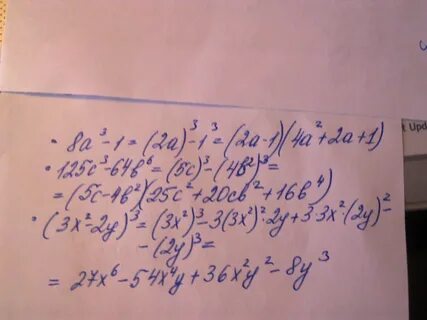 • 8a³-1 = (2a)³-1³ = (2a-1)(4a²+2a+1)
• 125c³-64b⁶ = (5c)³-(4b²)³ =
= (5c-4b²)(25c²+20cb²+16b⁴)
• (3x²-2y)³ = (3x²)³-3(3x²)²·2y+3·3x²·(2y)²-
-(2y)³ =
= 27x⁶-54x⁴y+36x²y²-8y³